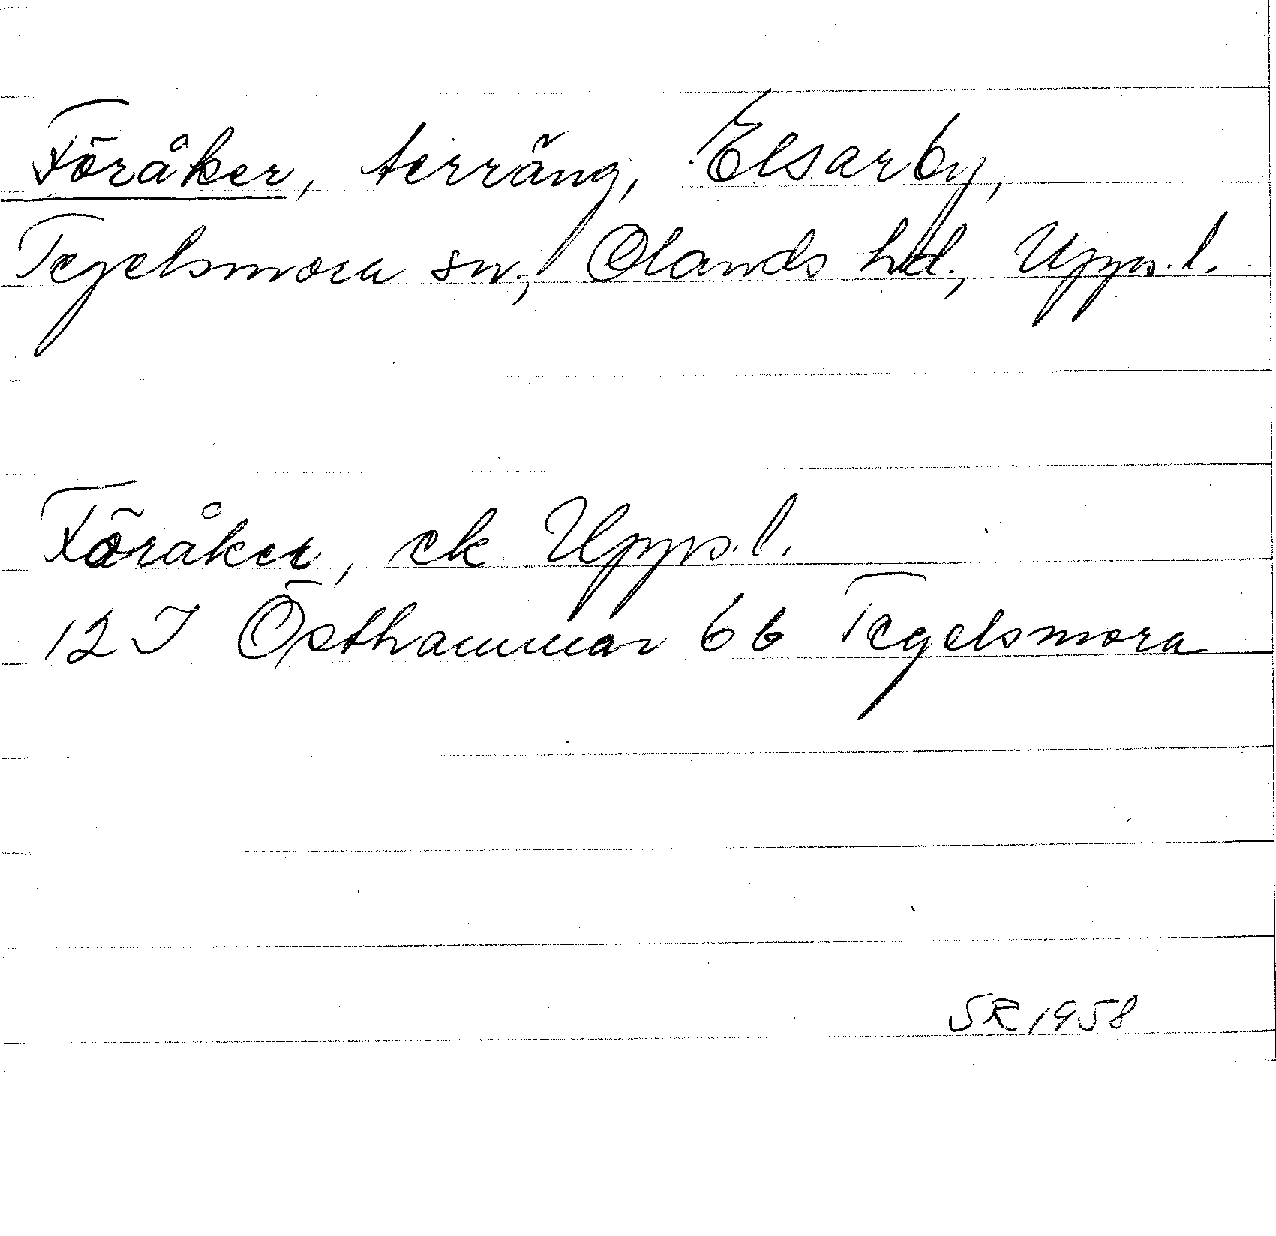 Föråker, terräng, Elsarby,
Tegelsmora sn, Olands hd., Uppl.
Föråker, ek Uppl.
12 I Östhammar 6 b Tegelsmora
SR 1958